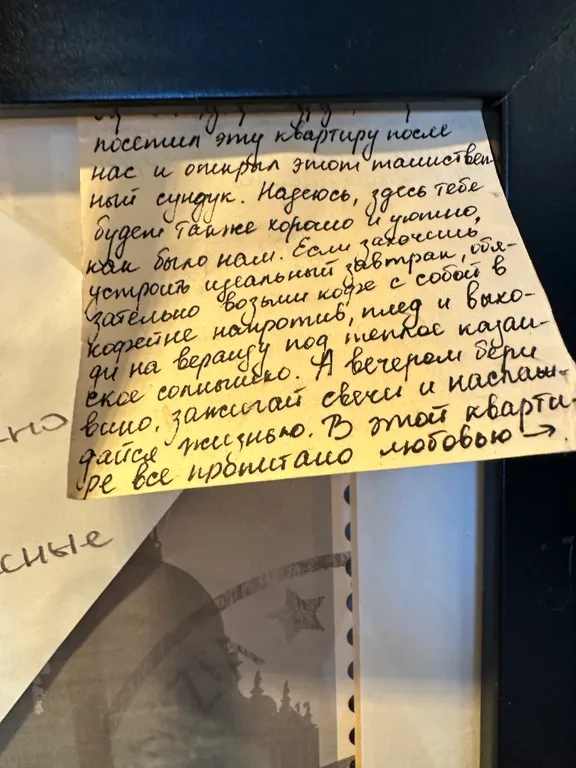 посетил эту квартиру после
нас и открыл этот таинствен-
ный сундук. Надеюсь, здесь тебе
будет также хорошо и уютно,
как было нам. Если захочешь
устроить идеальный завтрак, обя-
зательно возьми кофе с собой в
кофейне напротив, плед и выхо-
ди на веранду под теплое казан-
ское солнышко. А вечером бери
вино, зажигай свечи и наслаж-
дайся жизнью. В этой кварти-
ре все пропитано любовью →.
сные